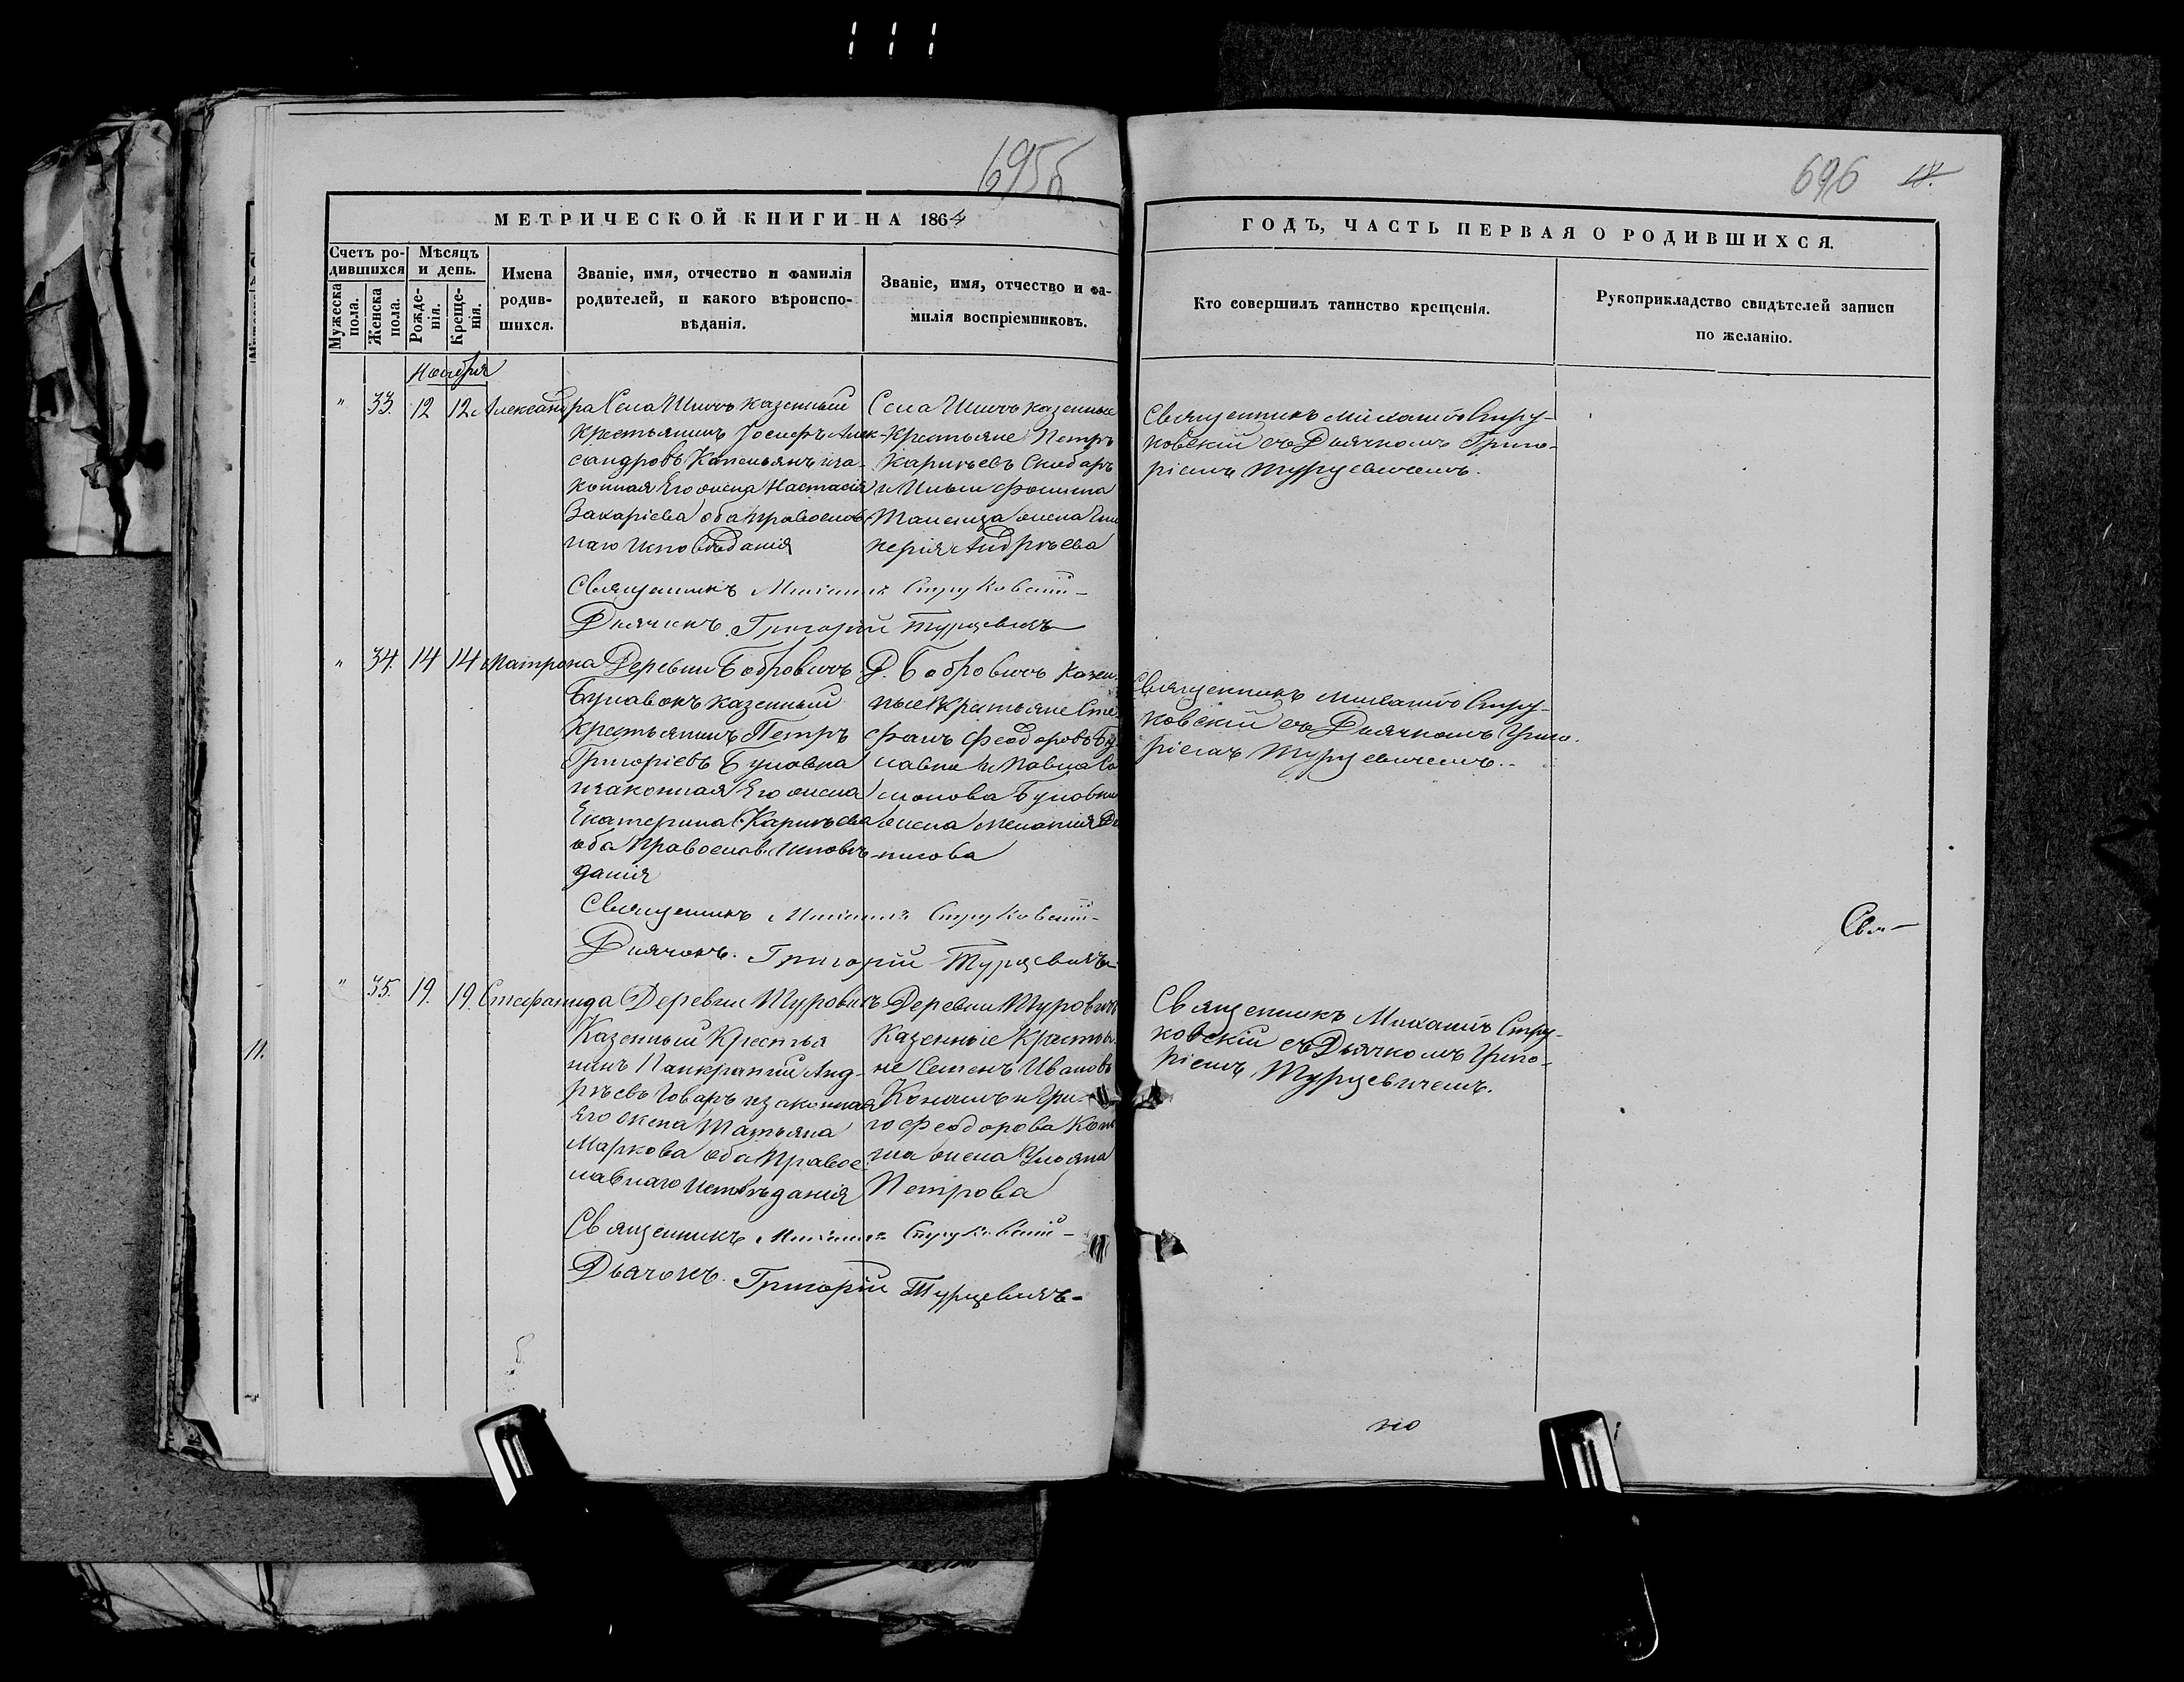 695б
МЕТРИЧЕСКОЙ КНИГИ НА 1864
Счетъ ро-
дившихся
Мѣсяцъ
и день.
Мужеска
пола.
Женска
пола.
Рожде-
нія.
Креще-
нія.
Имена
родив-
шихся.
Званіе, имя, отчество и фамилія
родителей, и какого вѣроиспо-
вѣданія.
Званіе, имя, отчество и фа-
милія воспріемниковъ.
Ноября
" 33. 12 12 Александра
Села казенный
Крестьянинъ Іосифъ Алек-
сандровъ иза-
конная Его жена Настасія
Захаріева оба православ-
наго исповѣданія
Села казенные
Крестьяне Петръ
и
жена
Андрѣева
Священникъ Михаилъ Струковскій
Дьячекъ Григорій Турцевичъ
" 34. 14 14 Матрона
Деревни Бобровичъ
казенный
Крестьянинъ Петръ
Григоріевъ
изаконная Его жена
Екатерина
оба Православ. Исповѣ-
данія
Д. Бобровичъ Казен-
ные Крестьяне Сте-
фанъ Феодоровъ Бу
жена Меланія
Священникъ Михаилъ Струковскій
Дьячокъ. Григорій Турцевичъ
" 35. 19. 19. Стефанида
Деревни Туровичъ
Казенный Крестья
нинъ Панкратій Анд-
рѣевъ Говаръ изаконная
Его жена Татьяна
Маркова оба Правос-
лавнаго Исповѣданія
Деревни Туровичъ
Казенные Крестья
не Семенъ Ивановъ
го Феодорова
жена Ульяна
Петрова
Священникъ Михаилъ Струковскій
Дьячокъ. Григорій Турцевичъ
11.
696
ГОДЪ, ЧАСТЬ ПЕРВАЯ О РОДИВШИХСЯ.
Кто совершилъ таинство крещенія.
Рукоприкладство свидѣтелей записи
по желанію.
Священникъ Михаилъ Стру-
ковскій съ Дьячкомъ Григо-
ріемъ Турцевичемъ.
Священникъ Михаилъ Стру-
ковскій съ Дьячкомъ Григо-
ріемъ Турцевичемъ.
Свя-
Священникъ Михаилъ Стру-
ковскій съ Дьячкомъ Григо-
ріемъ Турцевичемъ.
по